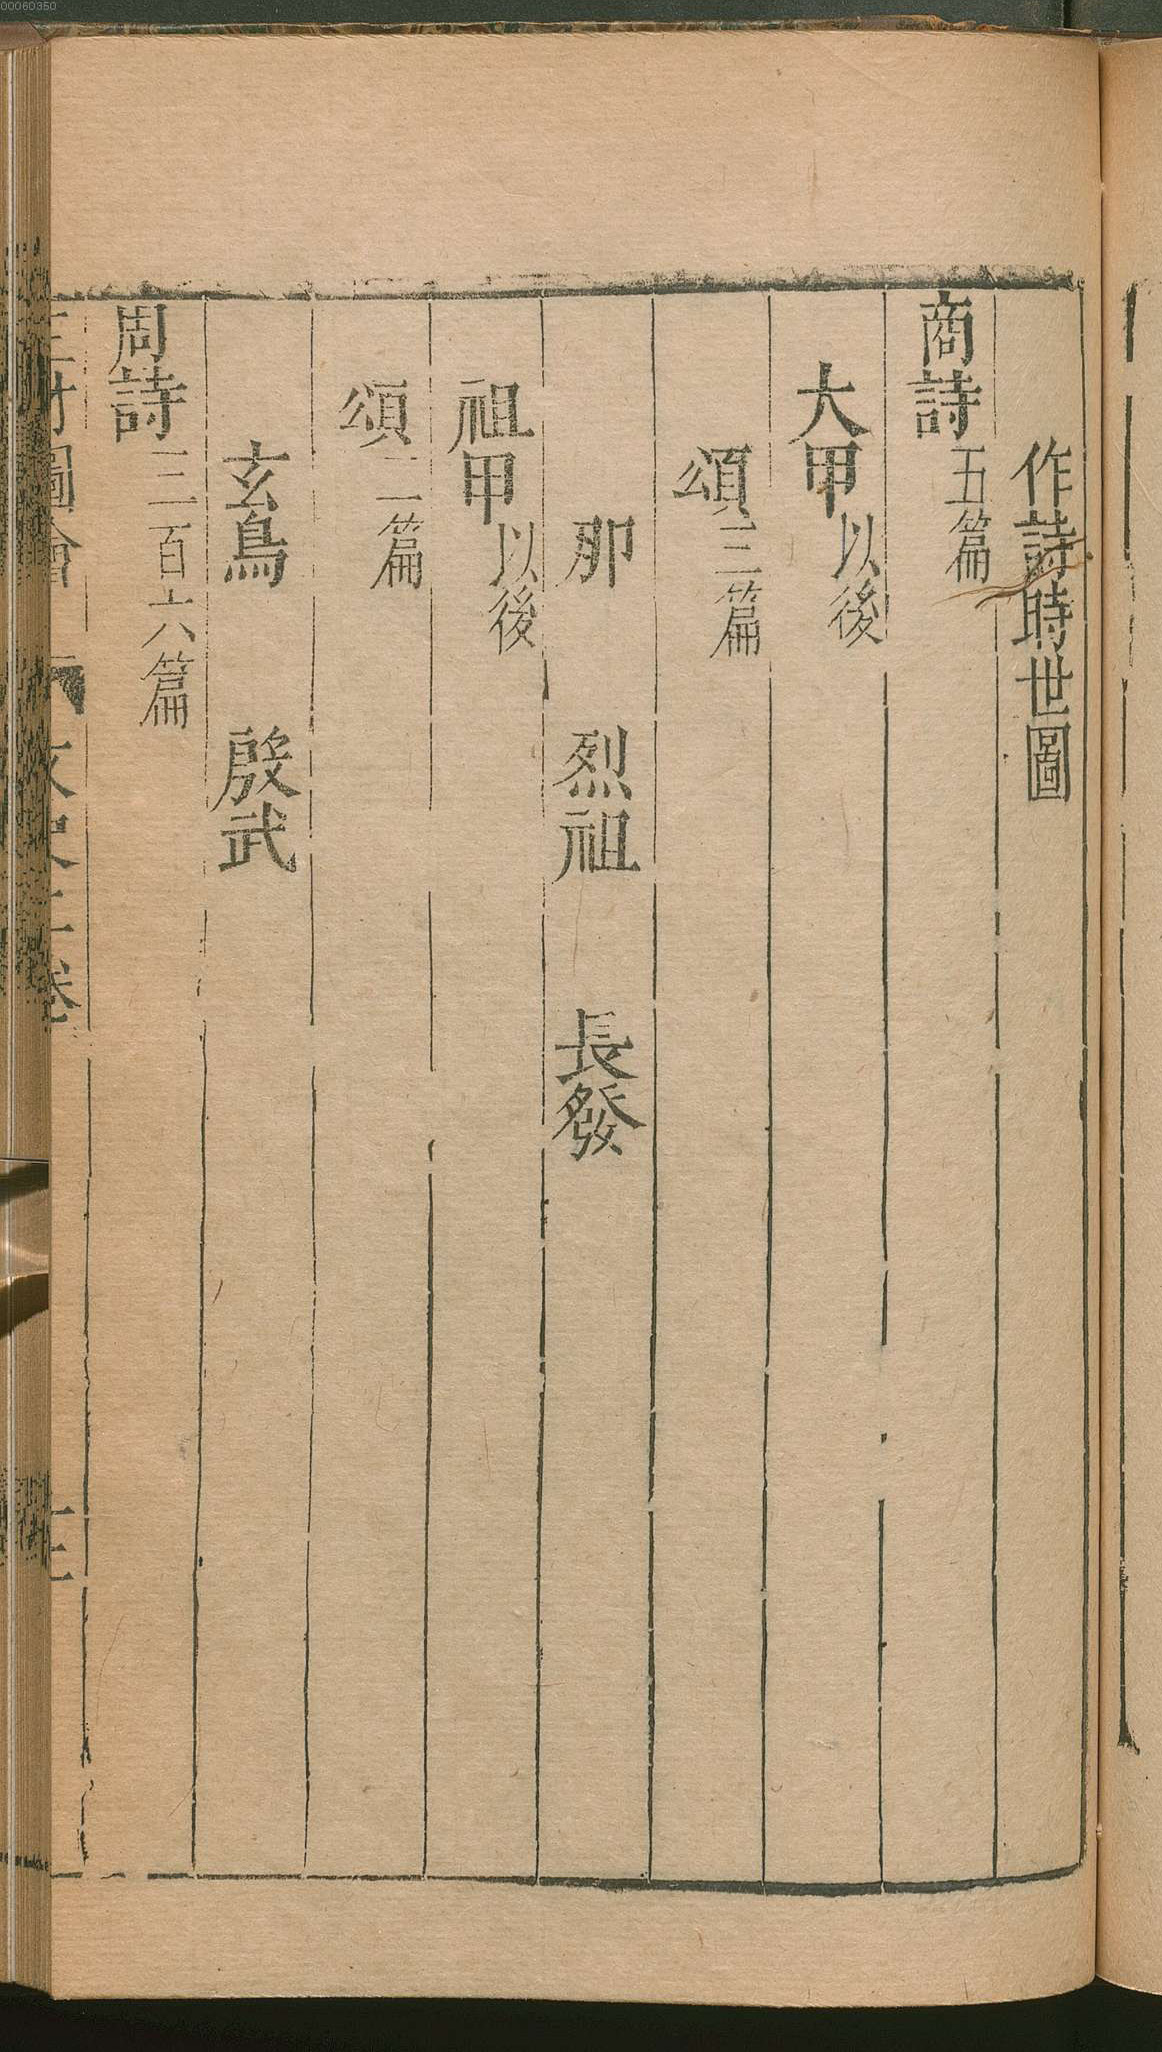 00060350
作詩時世圖
商詩五篇
大甲以後
頌三篇
那 烈祖 長發
祖甲以後
頌二篇
玄鳥 殷武
周詩三百六篇
三才圖會 文史二卷